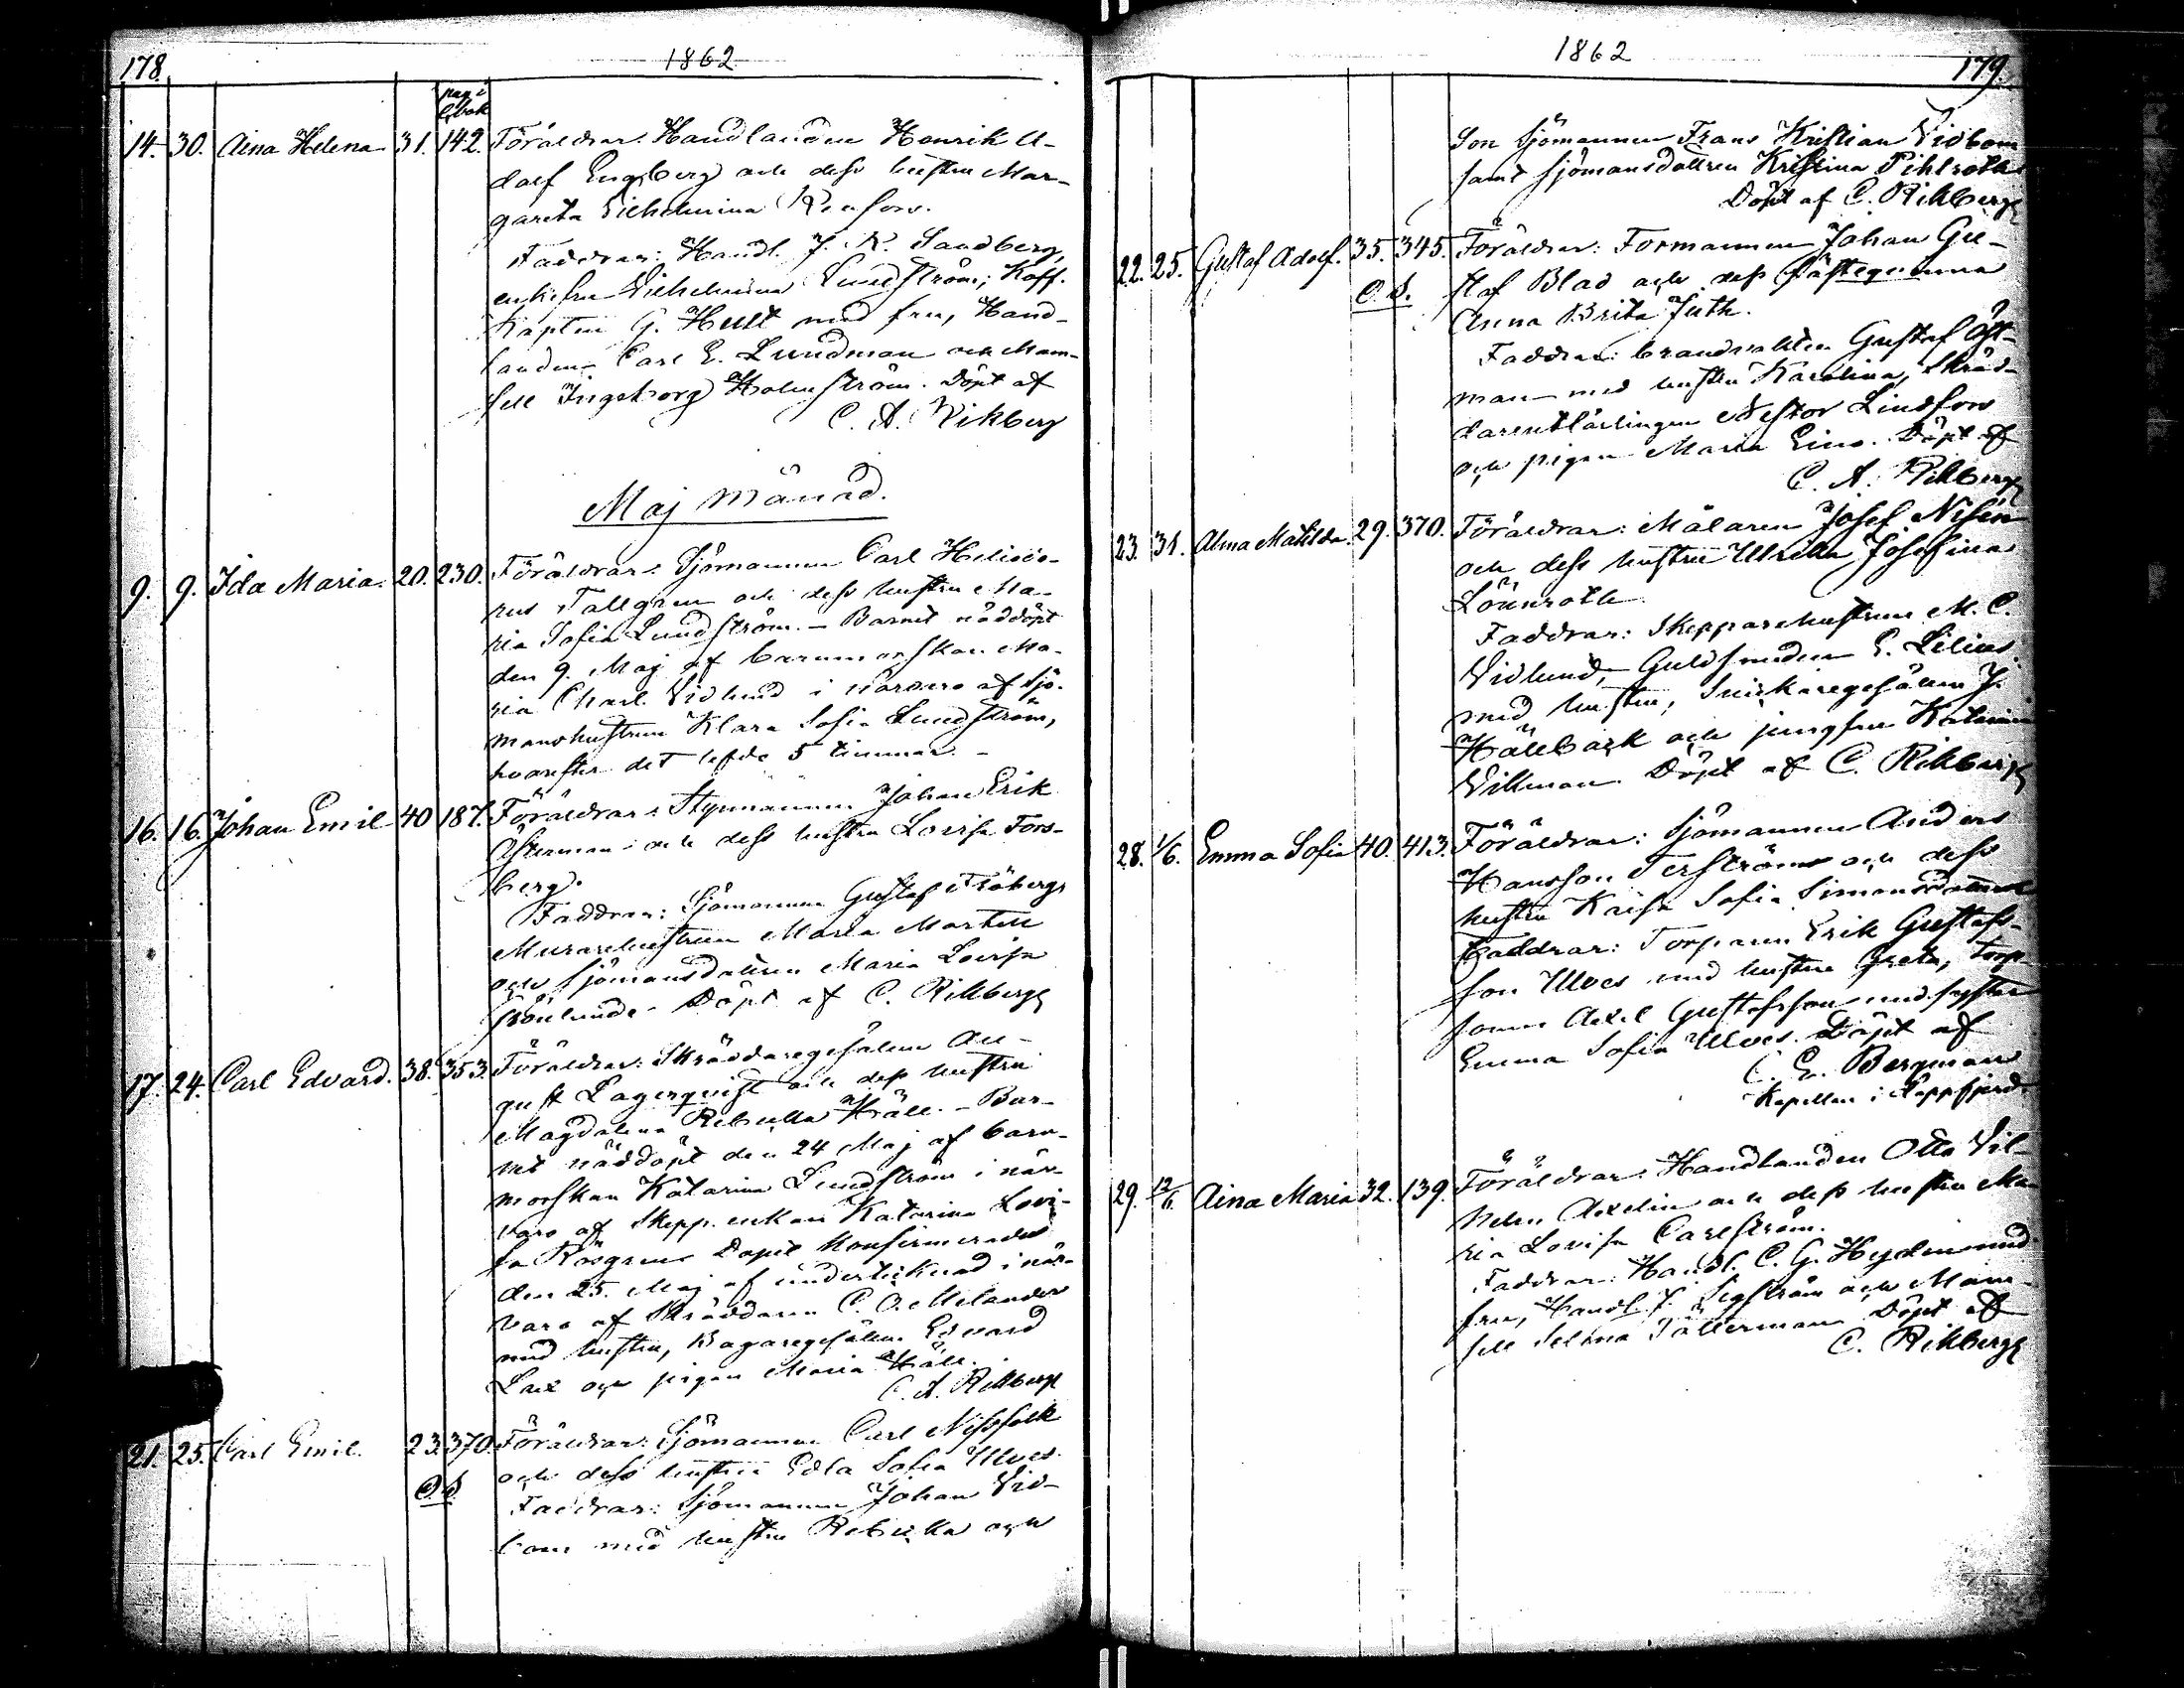 178.
1862
pag i
k.bok
14. 30. Aina Helena 31. 142. Föräldrar: Handlanden Henrik A-
dolf Engberg och dess hustru Mar-
gareta Vilhelmina Renfors.
Faddrar: Handl. J. N. Sandberg,
enkefru Vilhelmina Lundström; Koff.
Kapten G. Hellt med fru, Hand-
landen Carl E. Lundman och Mam-
sell Ingeborg Holmström. Döpt af
C. A. Rikberg
Maj månad.
9. 9. Ida Maria. 20. 230. Föräldrar: Sjömannen Carl Heliodo-
rus Tallgren och dess hustru Ma-
ria Sofia Lundström. - Barnet nöddöpt
den 9. Maj af barnmorskan Ma-
ria Charl. Vidlund i närvaro af Sjö-
manshustrun Klara Sofia Lundström,
hvarefter det lefde 5 timmar. -
16. 16. Johan Emil 40 187. Föräldrar: Styrmannen Johan Erik
Österman och dess hustru Lovisa Fors-
berg.
Faddrar: Sjömannen Gustaf Fröberg,
Murarehustrun Maria Martell
och Sjömansdottren Maria Lovisa
Grönlund. Döpt af C. Rikberg
17. 24. Carl Edvard. 38. 353. Föräldrar: Skräddaregesällen Au-
gust Lagerqvist och dess hustru
Magdalena Rebecka Häll. - Bar-
net nöddöpt den 24 Maj af barn-
morskan Katarina Lundström i när-
varo af Skepp. enkan Katarina Lovi-
sa Rosgren. Dopet konfirmerades
den 25. Maj af undertecknad i när-
varo af Skräddaren C. O. Melander
med hustru, Bagaregesällen Edvard
Lax och pigan Maria Häll.
C. A. Rikberg
21. 25. Carl Emil. 23. 370. Föräldrar: Sjömannen Carl Nissfolk
och dess hustru Edla Sofia Ulves.
O.S.
Faddrar: Sjömannen Johan Vid-
bom med hustru Rebecka och
1862
179.
Son Sjömannen Frans Kristian Vidbom
samt Sjömansdottren Kristina Pihlroth.
Döpt af C. Rikberg
22. 25. Gustaf Adolf. 35. 345. Föräldrar: Formannen Johan Gu-
staf Blad och dess fästeqvinna
O.S.
Anna Brita Juth.
Faddrar: brandvakten Gustaf Öst-
man med hustru Karolina, Skräd-
darelärlingen Nestor Lindfors
och pigan Maria Eino. Döpt af
C. A. Rikberg
23. 31. Alma Matilda. 29. 370. Föräldrar: Målaren Josef Nisén
och dess hustru Ulrika Josefina
Lönnroth.
Faddrar: Skepparehustrun M. C.
Vidlund, Guldsmeden E. Lilius
med hustru, Snickaregesällen J.
Hällback och jungfru Katarina
Villman. Döpt af C. Rikberg
28. 1/6. Emma Sofia 40. 413. Föräldrar: Sjömannen Anders
Hansson Terström och dess
hustru Kaisa Sofia Simonsdotter
Faddrar: Torparen Erik Gustafs-
son Ulves med hustru Greta, torp-
sonen Axel Gustafsson med syster
Emma Sofia Ulves. Döpt af
C. E. Bergman
Kapellan i Lappfjerd.
29. 12/6. Aina Maria 32. 139. Föräldrar: Handlanden Otto Vil-
helm Axelin och dess hustru Ma-
ria Lovisa Carlström.
Faddrar: Handl. C. G. Hydén med
fru, Handl. J. Sigström och Mam-
sell Selma Tällerman. Döpt af
C. Rikberg